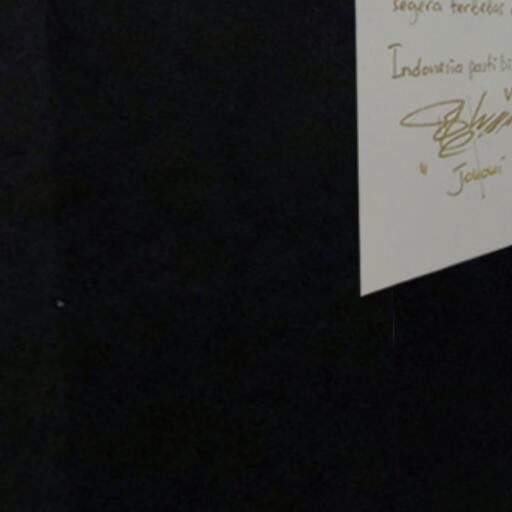 segera terbebas
Indonesia pasti bi
"Jououi